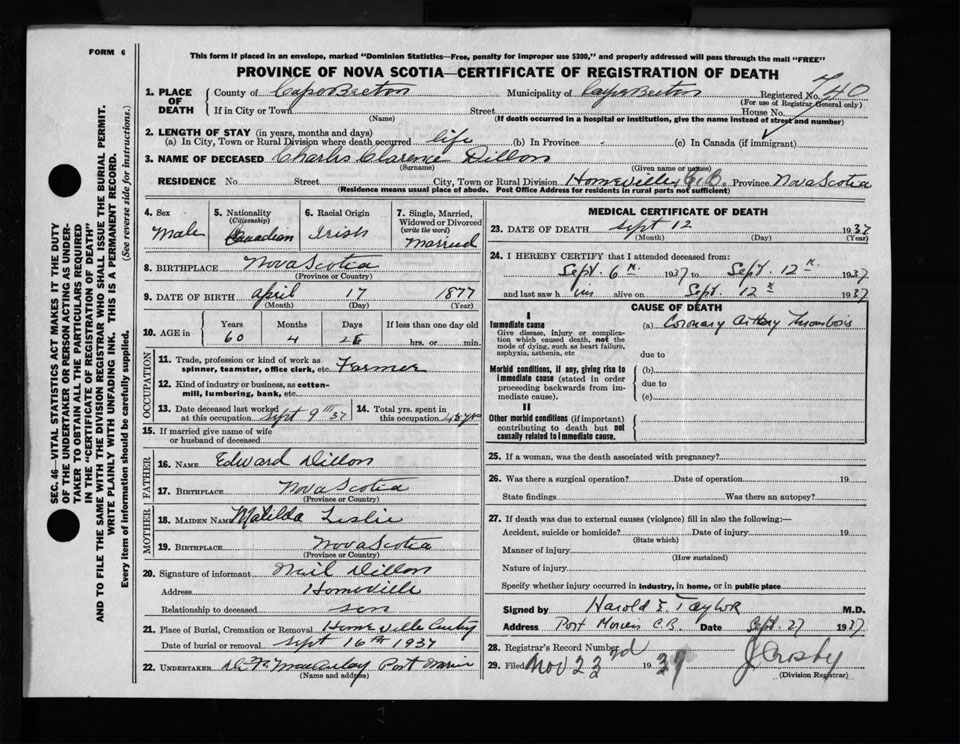 FORM 6
This form if placed in an envelope, marked "Dominion Statistics—Free, penalty for improper use $300," and properly addressed will pass through the mail "FREE"
PROVINCE OF NOVA SCOTIA—CERTIFICATE OF REGISTRATION OF DEATH
1. PLACE OF DEATH
County of Cape Breton Municipality of Cape Breton Registered No. 740
(For use of Registrar General only)
If in City or Town Street House No.
(Name) (If death occurred in a hospital or institution, give the name instead of street and number)
2. LENGTH OF STAY (in years, months and days)
(a) In City, Town or Rural Division where death occurred life (b) In Province (c) In Canada (if immigrant)
3. NAME OF DECEASED Charles Clarence Dillon
(Surname) (Given name or names)
RESIDENCE No. Street City, Town or Rural Division Homeville, C.B. Province Nova Scotia
(Residence means usual place of abode. Post Office Address for residents in rural parts not sufficient)
SEC. 46—VITAL STATISTICS ACT MAKES IT THE DUTY
OF THE UNDERTAKER OR PERSON ACTING AS UNDER-
TAKER TO OBTAIN ALL THE PARTICULARS REQUIRED
IN THE "CERTIFICATE OF REGISTRATION OF DEATH"
AND TO FILE THE SAME WITH THE DIVISION REGISTRAR WHO SHALL ISSUE THE BURIAL PERMIT.
WRITE PLAINLY WITH UNFADING INK. THIS IS A PERMANENT RECORD.
Every item of information should be carefully supplied. (See reverse side for instructions.)
4. Sex
Male
5. Nationality
(Citizenship)
Canadian
6. Racial Origin
Irish
7. Single, Married,
Widowed or Divorced
(write the word)
Married
8. BIRTHPLACE Nova Scotia
(Province or Country)
9. DATE OF BIRTH April 17 1877
(Month) (Day) (Year)
10. AGE in
Years Months Days If less than one day old
60 4 26 hrs. or min.
OCCUPATION
11. Trade, profession or kind of work as
spinner, teamster, office clerk, etc. Farmer
12. Kind of industry or business, as cotton-
mill, lumbering, bank, etc.
13. Date deceased last worked
at this occupation Sept 9 37
14. Total yrs. spent in
this occupation
15. If married give name of wife
or husband of deceased
FATHER
16. NAME Edward Dillon
17. BIRTHPLACE Nova Scotia
(Province or Country)
MOTHER
18. MAIDEN NAME Matilda Leslie
19. BIRTHPLACE Nova Scotia
(Province or Country)
20. Signature of informant Neil Dillon
Address Homeville
Relationship to deceased son
21. Place of Burial, Cremation or Removal Homeville
Date of burial or removal Sept 16th 1937
22. UNDERTAKER Port Morien
(Name and address)
MEDICAL CERTIFICATE OF DEATH
23. DATE OF DEATH Sept 12 1937
(Month) (Day) (Year)
24. I HEREBY CERTIFY that I attended deceased from:
Sept. 6th 1937 to Sept. 12th 1937
and last saw him alive on Sept. 12th 1937
CAUSE OF DEATH
I
Immediate cause
Give disease, injury or complica-
tion which caused death, not the
mode of dying, such as heart failure,
asphyxia, asthenia, etc
(a) Coronary Artery Thrombosis
due to
Morbid conditions, if any, giving rise to
immediate cause (stated in order
proceeding backwards from im-
mediate cause).
(b)
due to
(c)
II
Other morbid conditions (if important)
contributing to death but not
causally related to immediate cause.
25. If a woman, was the death associated with pregnancy?
26. Was there a surgical operation? Date of operation 19
State findings Was there an autopsy?
27. If death was due to external causes (violence) fill in also the following:—
Accident, suicide or homicide? Date of injury 19
(State which)
Manner of injury
(How sustained)
Nature of injury
Specify whether injury occurred in industry, in home, or in public place
Signed by Harold E. Taylor M.D.
Address Port Morien C.B. Date Sept. 27 1937
28. Registrar's Record Number
29. Filed Nov 23rd 1937 J Crosby
(Division Registrar)